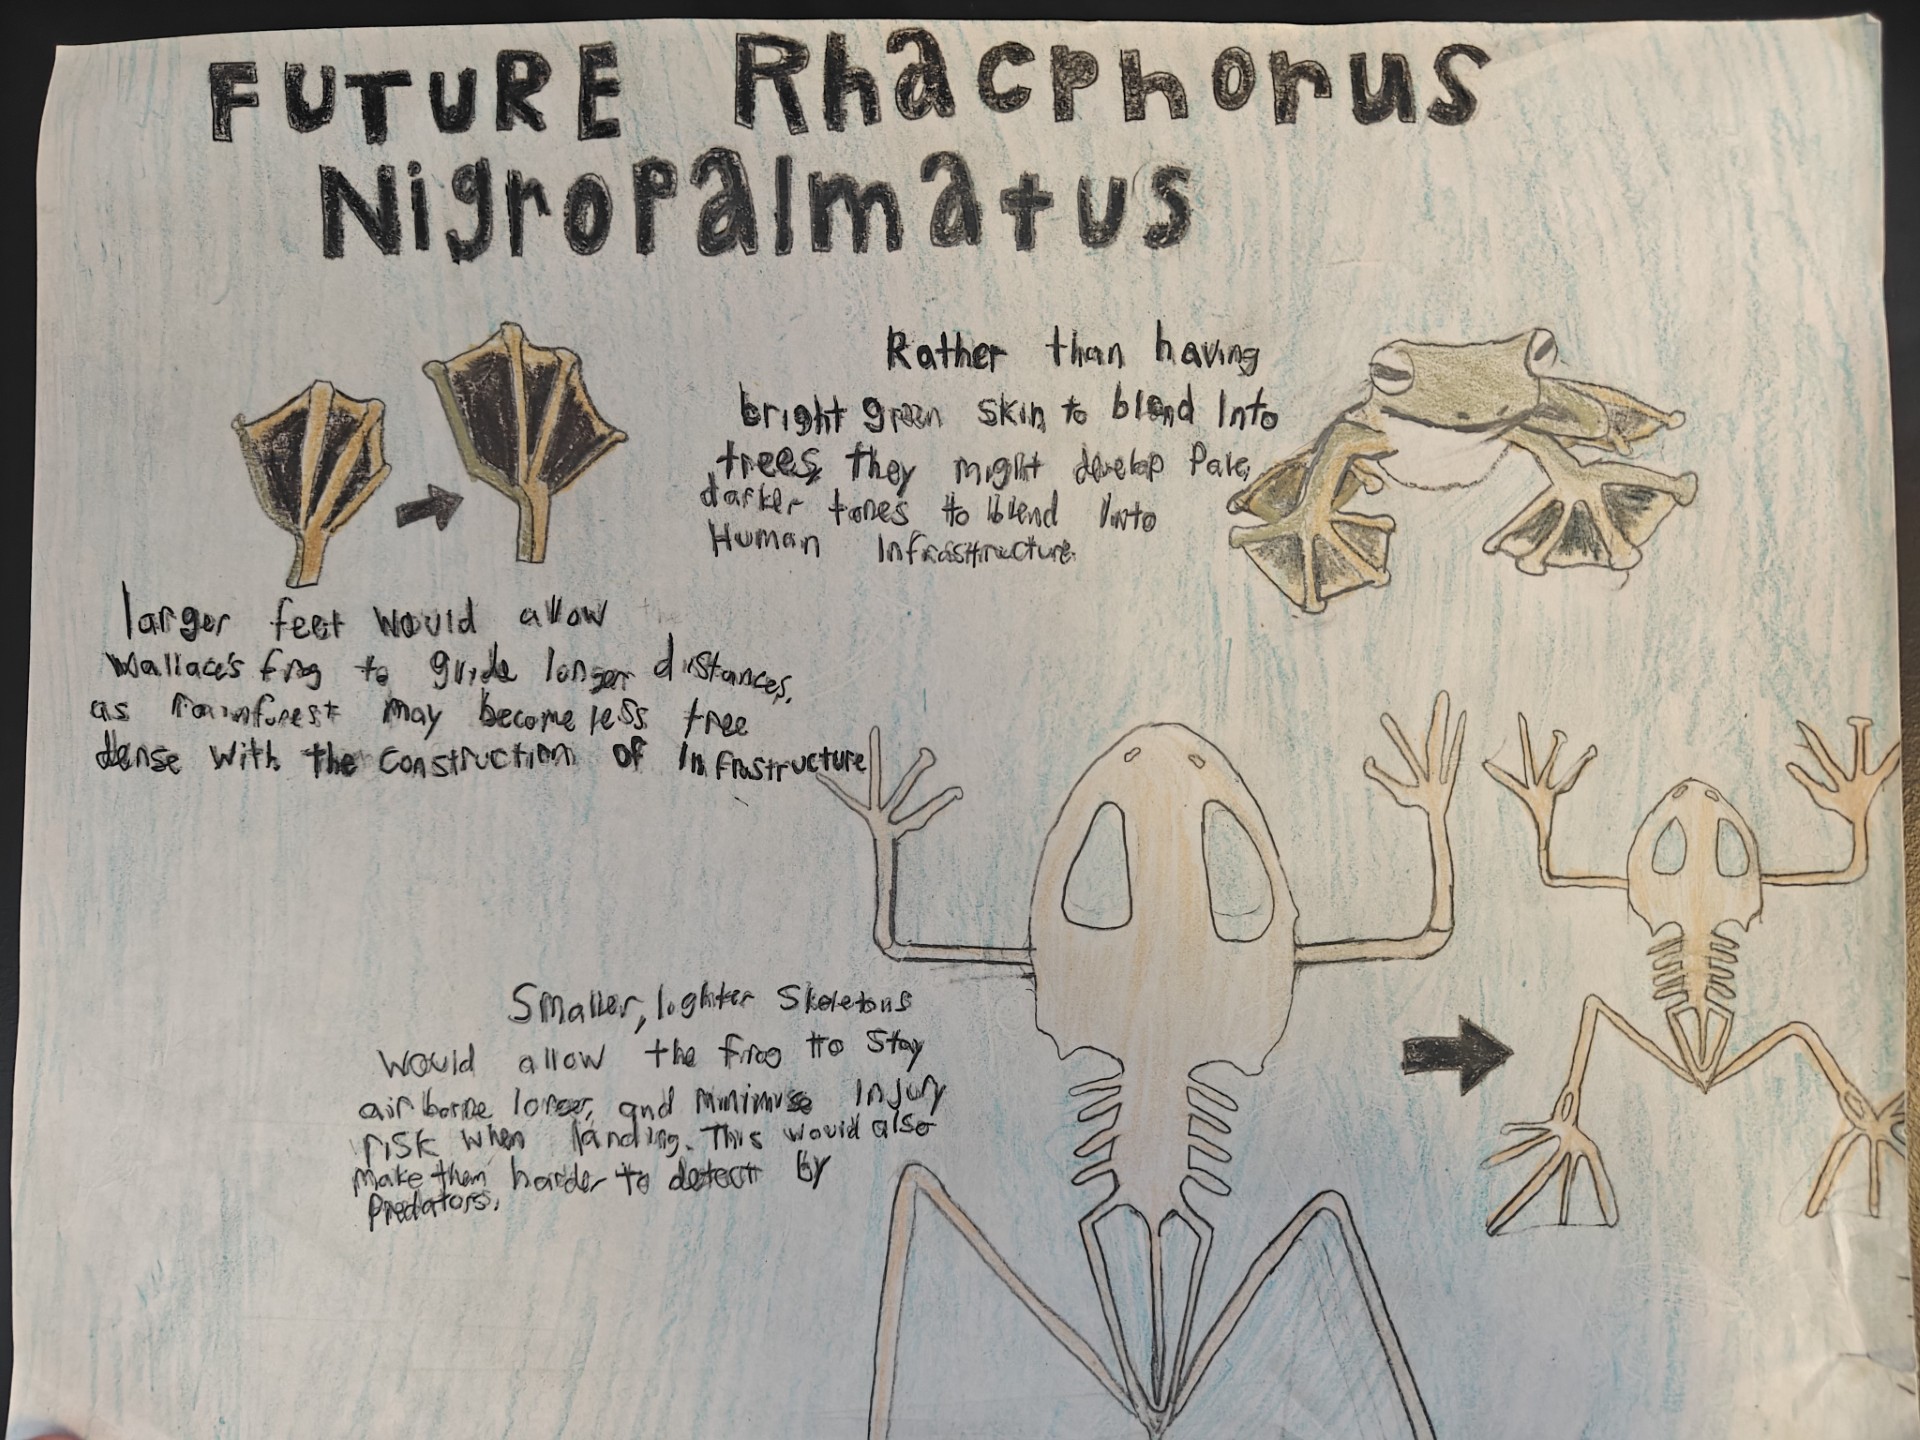 FUTURE Rhacphorus
Nigropalmatus
Rather than having
bright green skin to blend Into
trees, they might develop Pale,
darker tones to blend Into
Human Infrastructure.
larger feet would allow
Wallace's frog to glide longer distances,
as rainforest may become less tree
dense with the construction of Infrastructure
Smaller, lighter Skeletons
would allow the frog to Stay
air borne longer, and minimise Injury
risk when landing. This would also
make them harder to detect by
Predators.